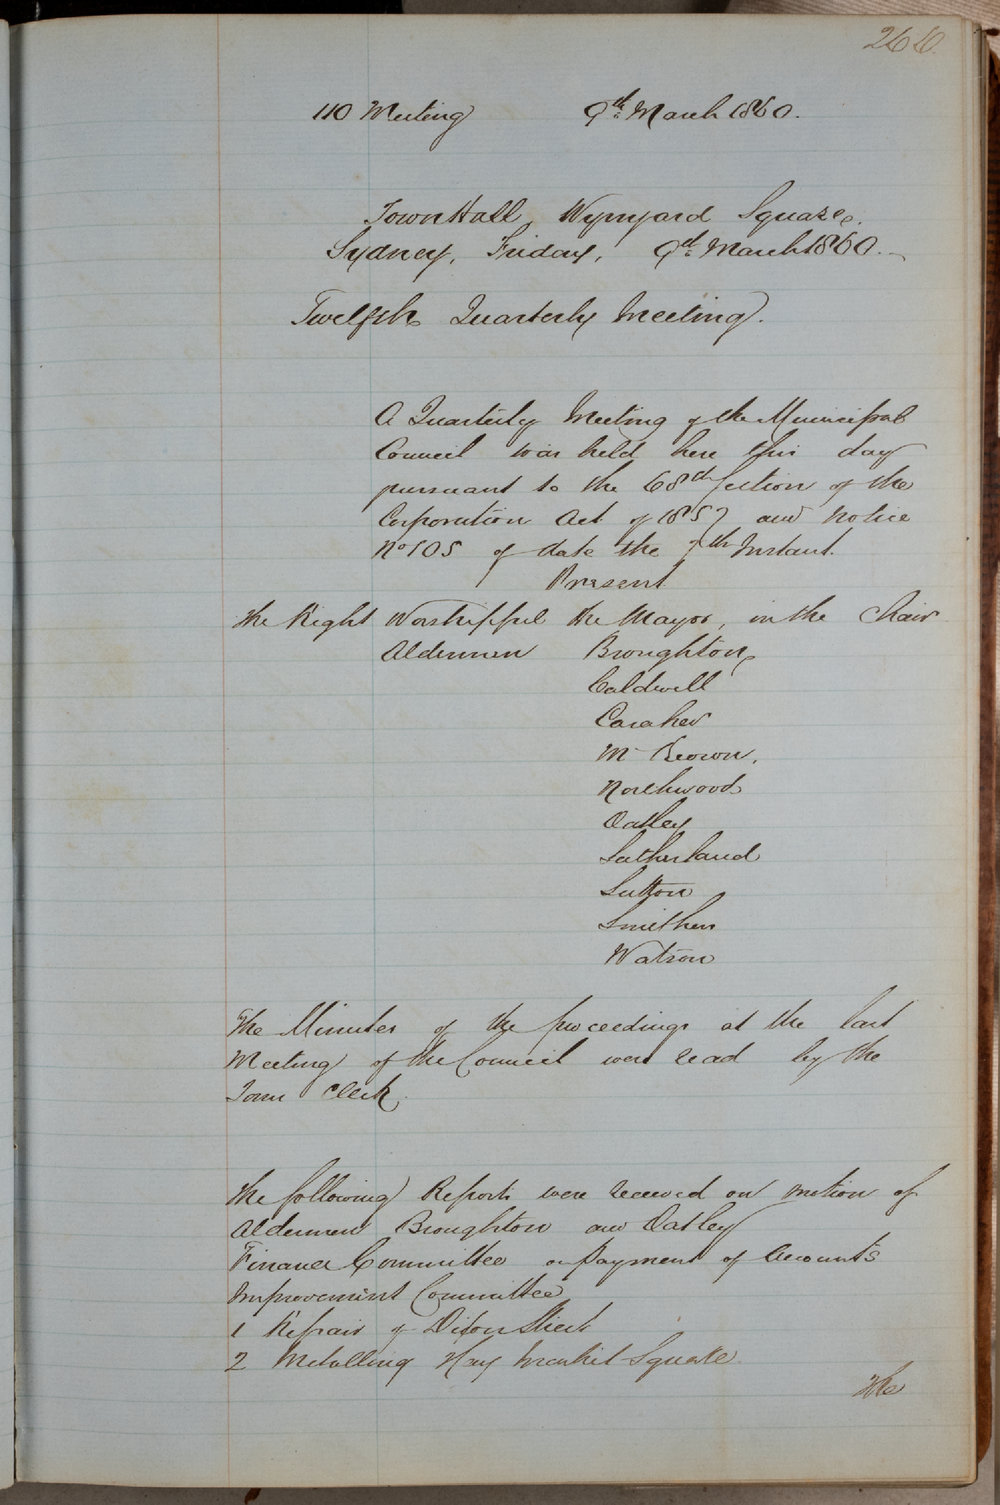 260.
110 Meeting 9th March 1860.
Town Hall, Wynyard Square.
Sydney, Friday, 9th March 1860.
Twelfth Quarterly Meeting.
A Quarterly Meeting of the Municipal
Council was held here this day
pursuant to the 68th Section of the
Corporation Act of 1857 and notice
No 105 of date the 7th Instant.
Present
The Right Worshipful the Mayor, in the Chair
Aldermen Broughton,
Caldwell
Caraher
Mc Beown,
Northwood
Oatley
Sutherland
Sutton
Smithers
Watson
The Minutes of the proceedings at the last
Meeting of the Council were read by the
Town Clerk.
The following Reports were received on motion of
Aldermen Broughton and Oatley
Finance Committee on payment of Accounts
Improvement Committee
1 Repair of Dixon Street
2 Metalling Hay Market Square
The